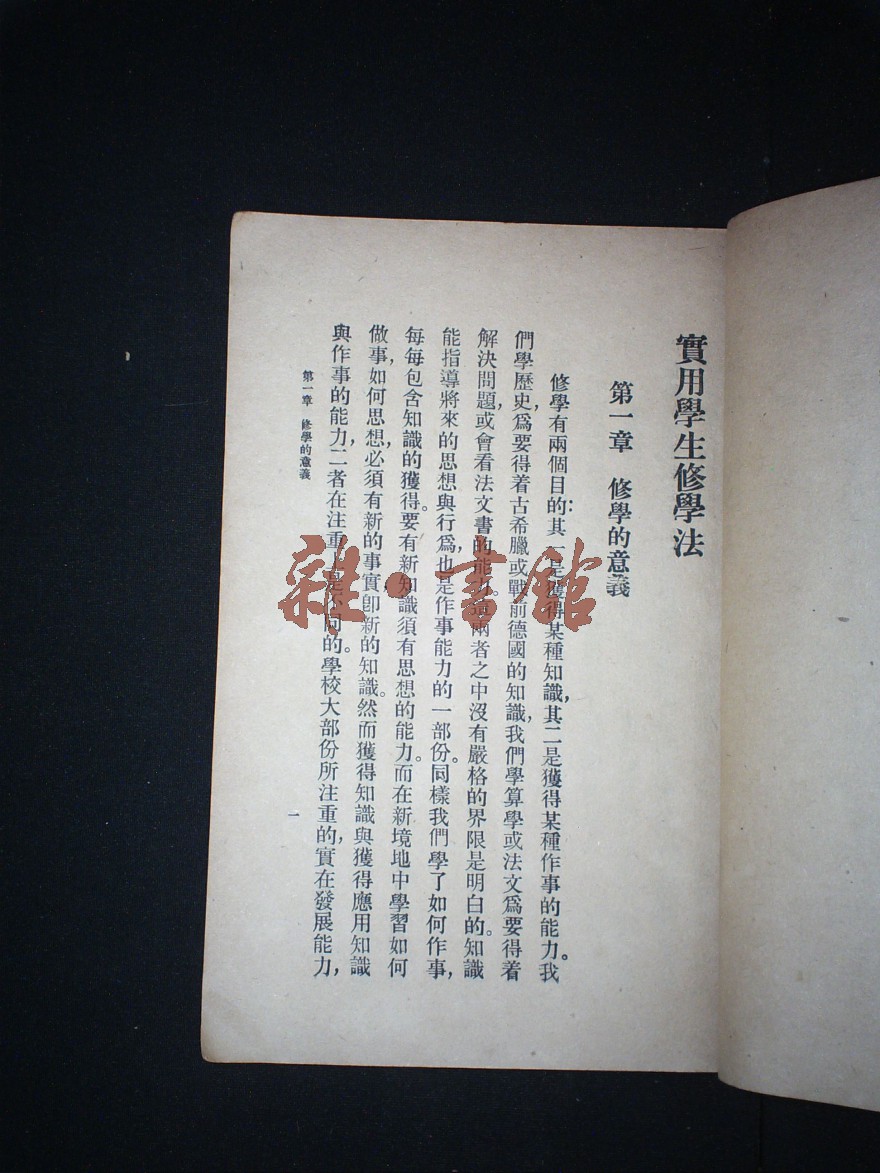 實用學生修學法
第一章 修學的意義
修學有兩個目的:其一是獲得某種知識,其二是獲得某種作事的能力。我
們學歷史,爲要得着古希臘或戰前德國的知識,我們學算學或法文爲要得着
解決問題,或會看法文書的能力。這兩者之中沒有嚴格的界限是明白的。知識
能指導將來的思想與行爲,也是作事能力的一部份。同樣我們學了如何作事,
每每包含知識的獲得。要有新知識須有思想的能力。而在新境地中學習如何
做事,如何思想,必須有新的事實,卽新的知識。然而獲得知識與獲得應用知識
與作事的能力,二者在注重上是不同的。學校大部份所注重的,實在發展能力,
第一章 修學的意義
一
雜·書館